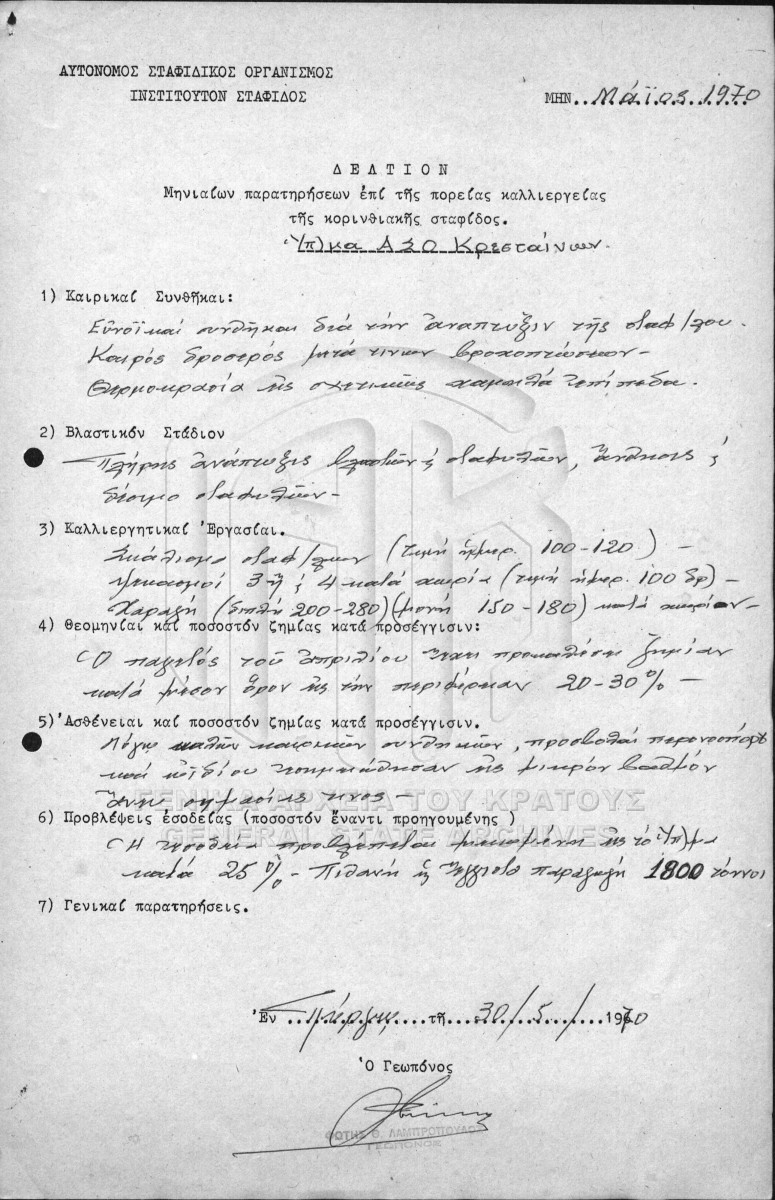 ΑΥΤΟΝΟΜΟΣ ΣΤΑΦΙΔΙΚΟΣ ΟΡΓΑΝΙΣΜΟΣ
ΙΝΣΤΙΤΟΥΤΟΝ ΣΤΑΦΙΔΟΣ
ΜΗΝ..Μάϊος 1970
ΔΕΛΤΙΟΝ
Μηνιαίων παρατηρήσεων ἐπί τῆς πορείας καλλιεργείας
τῆς κορινθιακῆς σταφίδος.
Ὑπ)κα ΑΣΟ Κρεσταίνων.
1) Καιρικαί Συνθῆκαι:
Εὐνοϊκαί συνθῆκαι διά τήν ἀνάπτυξιν τῆς σταφ/λου.
Καιρός δροσερός μετά τινων βροχοπτώσεων-
Θερμοκρασία εἰς σχετικῶς χαμηλά ἐπίπεδα.
2) Βλαστικόν Στάδιον
Πλήρης ἀνάπτυξις βλαστῶν & σταφυλῶν, ἄνθησις &
δέσιμο σταφυλῶν-
3) Καλλιεργητικαί Ἐργασίαι.
Σκάλισμα σταφ/λων (τιμή ἡμερ. 100-120) -
Ψεκασμοί 3 ἤ & 4 κατά (τιμή ἡμερ. 100 δρ)-
Χαραγή (διπλῆ 200-280)(μονή 150-180) κατά
4) Θεομηνίαι καί ποσοστόν ζημίας κατά προσέγγισιν:
Ὁ παγετός τοῦ Ἀπριλίου ἔχει προκαλέσει ζημίαν
κατά μέσον ὅρον εἰς τήν περιφέρειαν 20-30% -
5) Ἀσθένειαι καί ποσοστόν ζημίας κατά προσέγγισιν.
Λόγῳ καλῶν καιρικῶν συνθηκῶν, προσβολαί περονοσπόρου
καί ὠϊδίου ἐσημειώθησαν εἰς μικρόν βαθμόν
ἄνευ σημασίας τινος-
6) Προβλέψεις ἐσοδείας (ποσοστόν ἔναντι προηγουμένης )
Ἡ ἐσοδεία προβλέπεται μειωμένη εἰς τό Ὑπ)μα
κατά 25 %- Πιθανή παραγωγή 1800 τόννοι
7) Γενικαί παρατηρήσεις.
Ἐν Πύργῳ τῇ 30/5/1970
Ὁ Γεωπόνος
ΦΩΤΗΣ Θ. ΛΑΜΠΡΟΠΟΥΛΟΣ
ΓΕΩΠΟΝΟΣ
ΓΕΝΙΚΑ ΑΡΧΕΙΑ ΤΟΥ ΚΡΑΤΟΥΣ
GENERAL STATE ARCHIVES